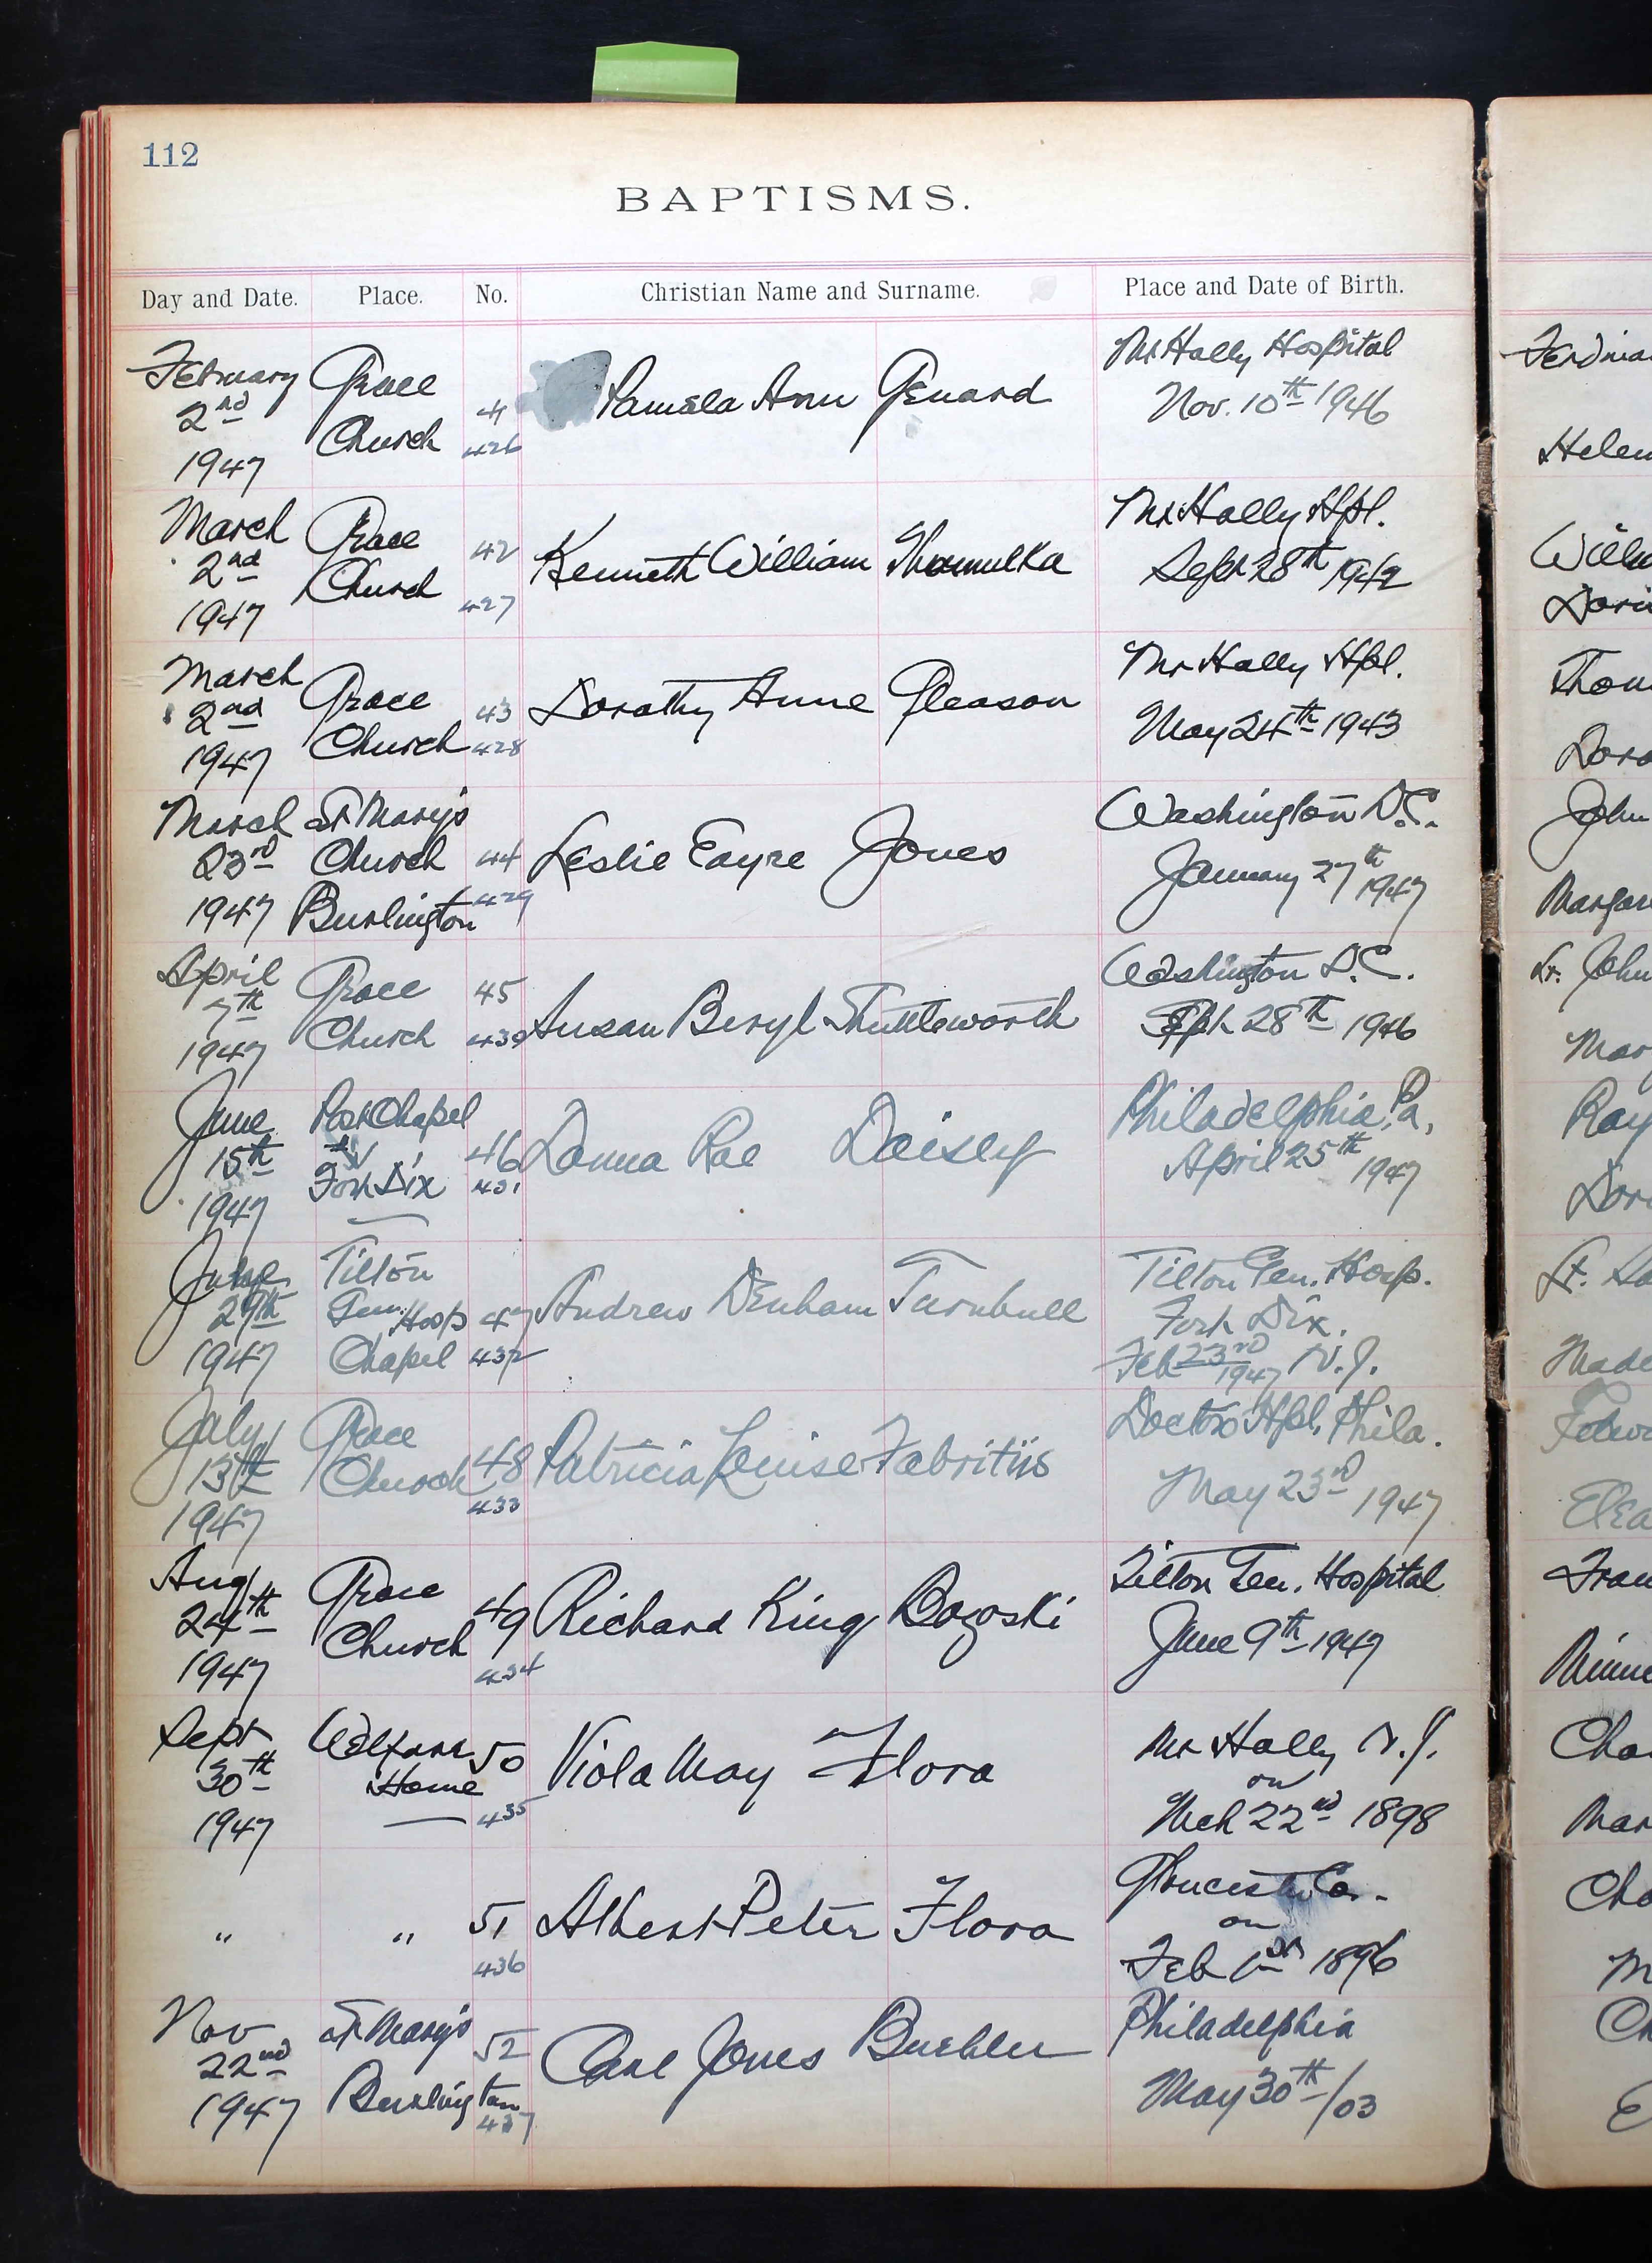 112
BAPTISMS.
Day and Date. Place. No. Christian Name and Surname. Place and Date of Birth.
February Grace Mt Holly Hospital
2nd 41 Pamela Ann Genard Nov. 10th 1946
1947 Church 426
March Grace 42 Mt Holly Hpl.
2nd Kenneth William Sept 28th 1942
1947 Church 427
March Grace 43 Mt Holly Hpl.
2nd Dorothy Anne Gleason May 24th 1943
1947 Church 428
March St Mary's Washington D.C.
23rd Church 44 Leslie Eayre Jones January 27th
1947 Burlington 429 1947
April Grace 45 Washington D.C.
7th Susan Beryl Shuttleworth Sept 28th 1946
1947 Church 430
June Post Chapel Philadelphia, Pa,
15th 46 Donna Rae Daisey April 25th
1947 Fort Dix 431 1947
June Tilton Tilton Gen. Hosp.
29th Gen. Hosp 47 Andrew Denham Turnbull Fort Dix.
1947 Chapel 432 Feb 23rd 1947 N.J.
July Grace Doctors Hpl, Phila.
13th Church 48 Patricia Louise Fabritiis May 23rd
1947 433 1947
Aug Grace Tilton Gen. Hospital
24th 49 Richard King Bozoski June 9th 1947
1947 Church 434
Sept Welfare 50 Mt Holly N.J.
30th Home Viola May Flora on
1947 435 Mch 22nd 1898
Gloucester Co.
" " 51 Albert Peter Flora on
436 Feb 1st 1896
Nov St Mary's 52 Philadelphia
22nd Jones Buehler
1947 Burlington 437 May 30th /03
Helen
Thom
John
Lt. John
Ray
Lt.